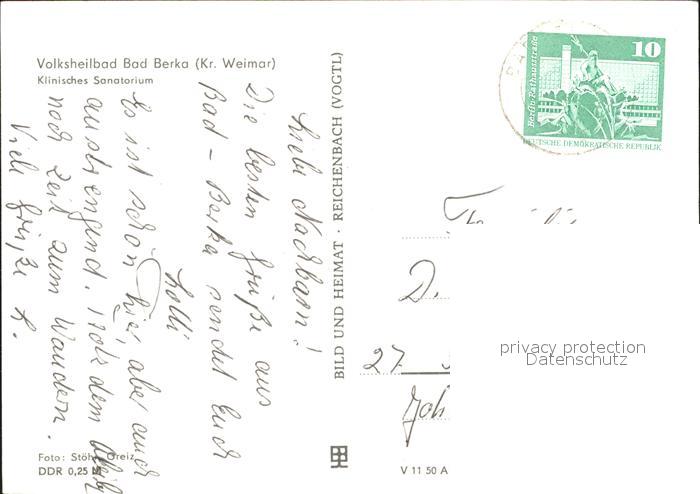 Volksheilbad Bad Berka (Kr. Weimar)
Klinisches Sanatorium
Liebe Nachbarn!
Die besten Grüße aus
Bad-Berka sendet Euch
Lolli
Es ist schön hier, aber auch
anstrengend. Trotz dem bleibt
noch Zeit zum Wandern.
Viele Grüße L.
Foto: Stöhr, Greiz
DDR 0,25 M
BILD UND HEIMAT · REICHENBACH (VOGTL)
V 11 50 A
10
Berlin, Rathausstraße
DEUTSCHE DEMOKRATISCHE REPUBLIK
D.
27
Joh
privacy protection
Datenschutz